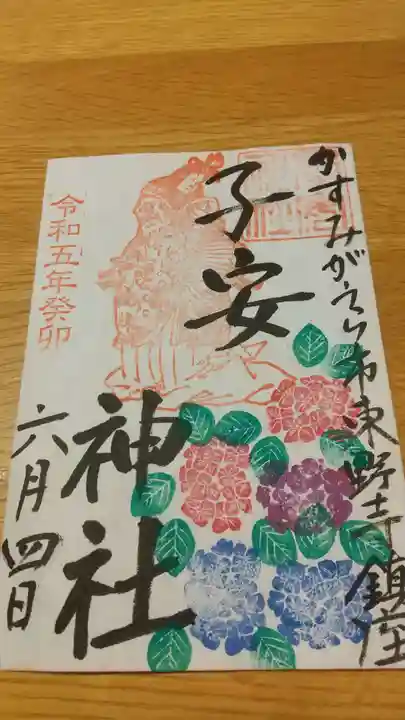 かすみがうら市東野寺鎮座
子安
神社
令和五年癸卯
六月四日